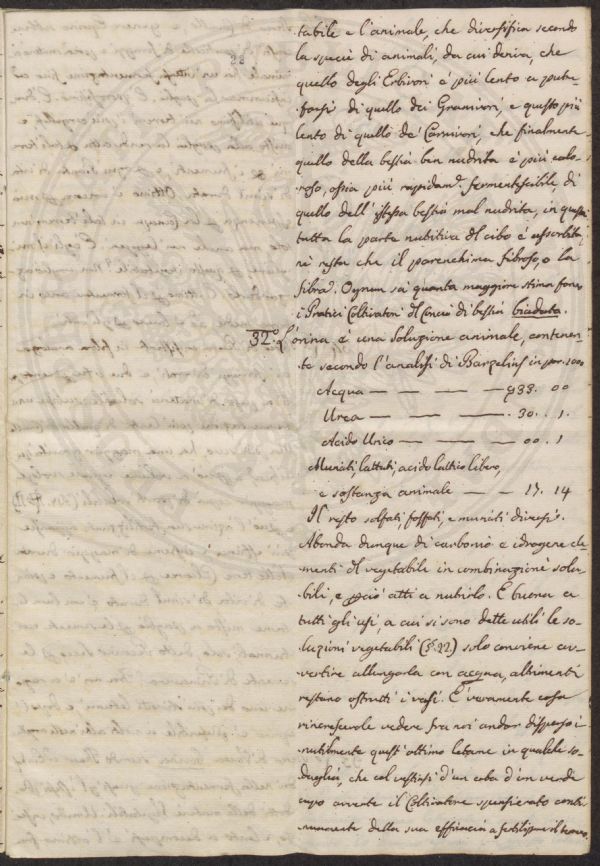 28
tabile e l'animale, che diversifica secondo
la specie di animali, da cui deriva, che
quello degli Erbivori è più lento a putre-
farsi di quello dei Granivori, e questo più
lento di quello de' Carnivori, che finalmente
quello della bestia ben nudrita è più calo-
roso, ossia più rapidam.e fermentescibile, di
quello dell'istessa bestia mal nudrita, in questa
tutta la parte nutritiva del cibo è assorbita,
nè resta che il parenchima fibroso, o la
fibra. Ognun sa quanta maggiore stima fanno
i Pratici Coltivatori del Concio di bestia biadata.
32.° L'orina è una Soluzione animale, contenen-
te secondo l'analisi di Barzelius in par. 1000
Acqua — — — — 933. 00
Urea — — — — 30. 1.
Acido Urico — — — 00. 1
Muriati, lattati, acido lattico libero,
e sostanza animale — — 17. 14
Il resto solfati, fosfati, e muriati diversi.
Abonda dunque di carbonio e idrogene ele-
menti del vegetabili in combinazione solu-
bili, e perciò atti a nutrirlo. È buona a
tutti gli usi, a cui si sono dette utili le so-
luzioni vegetabili (§. 22) solo conviene av-
vertire allungarla con acqua, altrimenti
restano ostrutti i vasi. È veramente cosa
rincrescevole vedere fra noi andar disperso i-
nutilmente quest'ottimo letame in qualche so-
daglia, che col vestirsi d'un'erba d'un verde
cupo avverte il Coltivatore spensierato conti-
nuamente della sua efficacia a fertilizzare il terreno